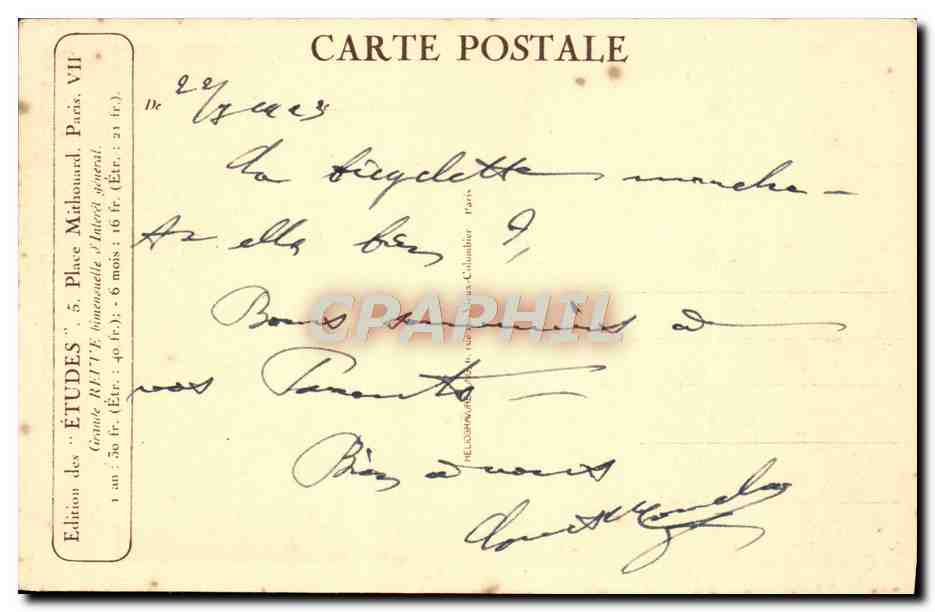 CARTE POSTALE
Edition des "ÉTUDES", 5, Place Mithouard, Paris, VII
Grande REVUE bimensuelle d'Interêt général.
1 an : 30 fr. (Étr. : 40 fr.); - 6 mois : 16 fr. (Étr. : 21 fr.).
De 22/7
La bicyclette marche -
elle bien ?
Bons souvenirs à
vos Parents -
Bien à vous
HELIOGRAVURE Vieux-Colombier Paris
CPAPHIL